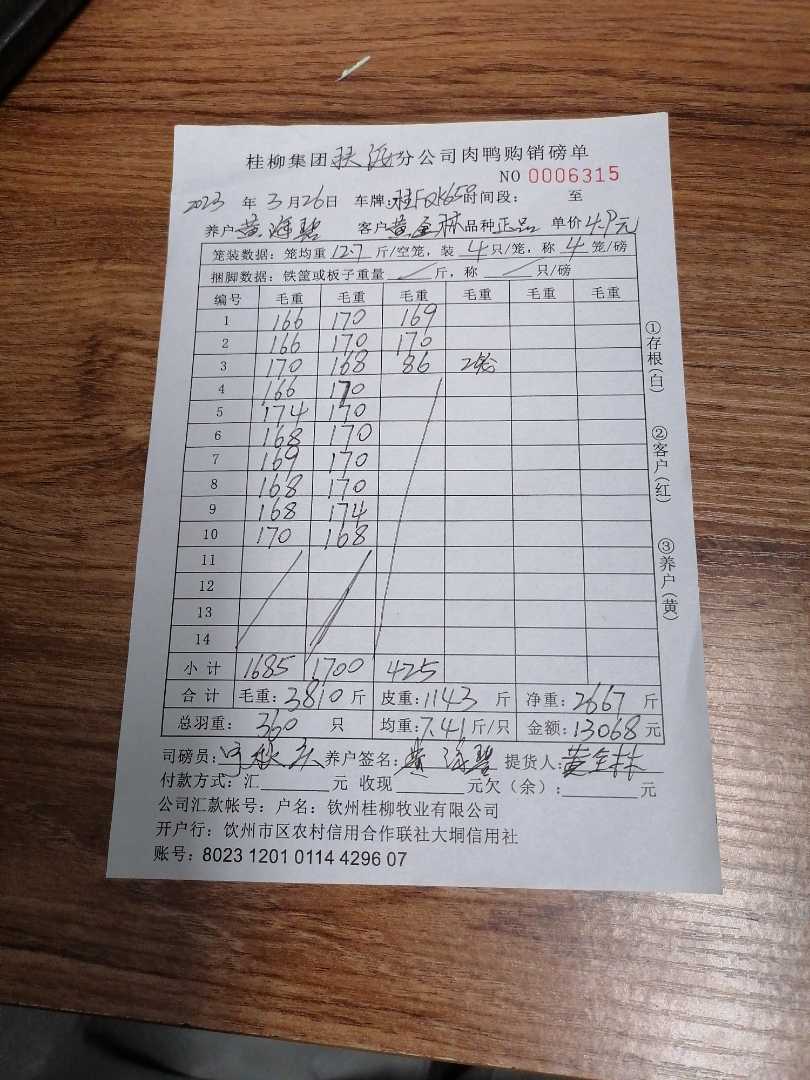 桂柳集团 分公司肉鸭购销磅单
NO 0006315
2023 年 3 月 26 日 车牌: 时间段: 至
养户 黄海碧 客户 黄金林 品种 正品 单价 4.9元
笼装数据: 笼均重 12.7 斤/空笼, 装 4 只/笼, 称 4 笼/磅
捆脚数据: 铁筐或板子重量 斤, 称 只/磅
编号 毛重 毛重 毛重 毛重 毛重 毛重
1 166 170 169
2 166 170 170
3 170 168 86
4 166 170
5 174 170
6 168 170
7 169 170
8 168 170
9 168 174
10 170 168
11
12
13
14
小计 1685 1700 425
合计 毛重: 3810 斤 皮重: 1143 斤 净重: 2667 斤
总羽重: 360 只 均重: 7.41 斤/只 金额: 13068 元
司磅员: 养户签名: 黄海碧 提货人: 黄金林
付款方式: 汇 元 收现 元欠(余): 元
公司汇款帐号: 户名: 钦州桂柳牧业有限公司
开户行: 钦州市区农村信用合作联社大垌信用社
账号: 8023 1201 0114 4296 07
①存根(白)
②客户(红)
③养户(黄)